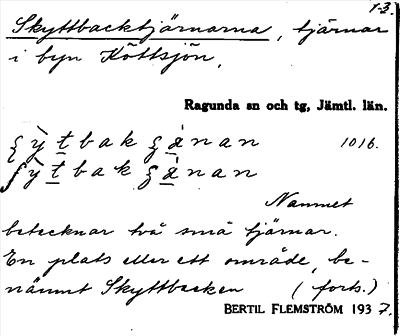 1-3.
Skyttbacktjärnarna, tjärnar
i byn Köttsjön.
Ragunda sn och tg, Jämtl. län.
1016.
Namnet
betecknar två små tjärnar.
En plats eller ett område, be-
nämnt Skyttbacken (forts.)
BERTIL FLEMSTRÖM 1937.